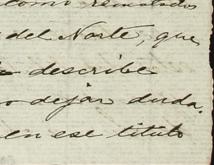 como rematados
del Norte, que
describe
dejar duda.
en ese titulo